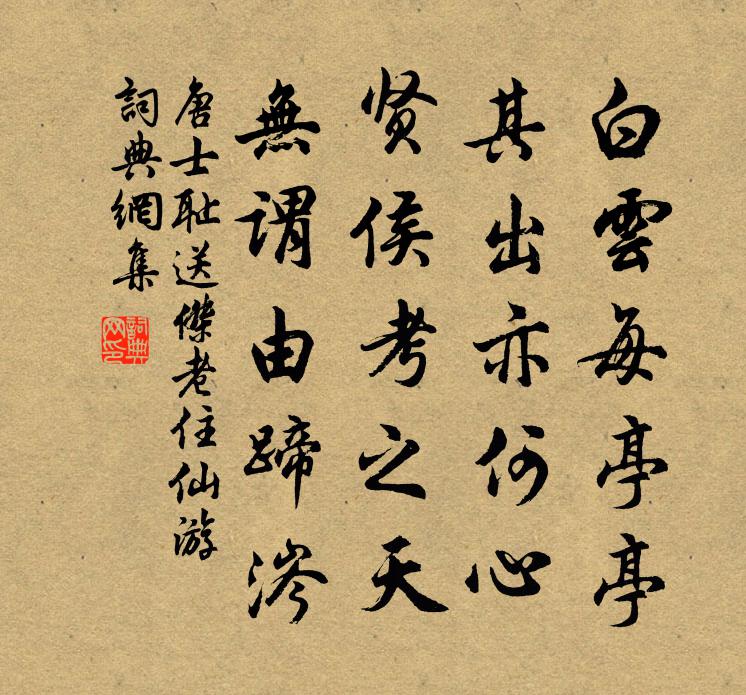 白雲每亭亭
其出亦何心
贤侯考之天
無謂由蹄涔
唐士耻送傑老住仙游
詞典網集
詞典网印